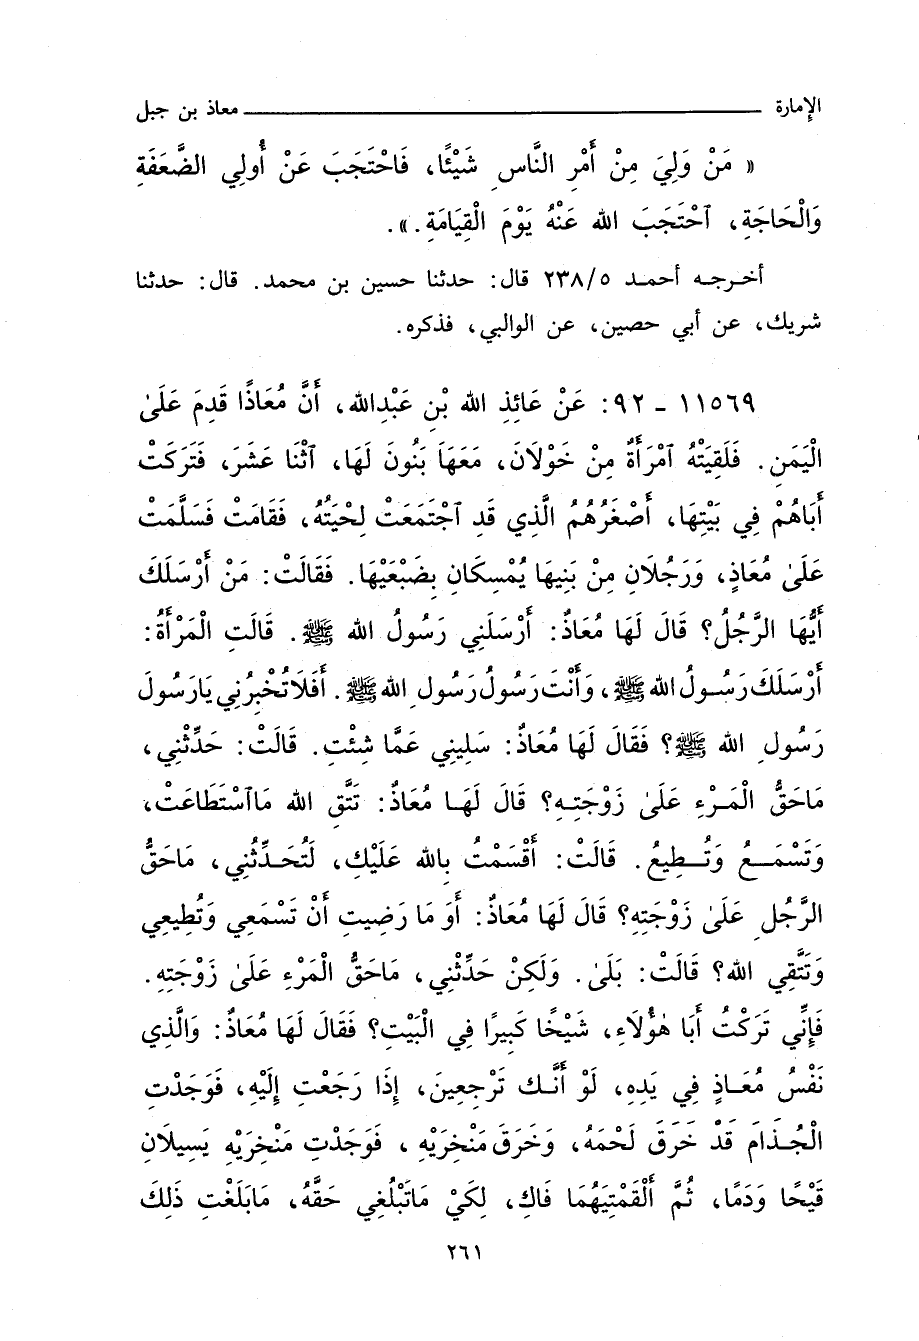 الإمارة ــــــــــــــــــــــــــــــــ معاذ بن جبل
« مَنْ وَلِيَ مِنْ أَمْرِ النَّاسِ شَيْئًا، فَاحْتَجَبَ عَنْ أُولِي الضَّعَفَةِ
وَالْحَاجَةِ، ٱحْتَجَبَ الله عَنْهُ يَوْمَ الْقِيَامَةِ.».
أخرجه أحمد ٢٣٨/٥ قال: حدثنا حسين بن محمد. قال: حدثنا
شريك، عن أبي حصين، عن الوالبي، فذكره.
١١٥٦٩ - ٩٢: عَنْ عَائِذِ الله بْنِ عَبْدِالله، أَنَّ مُعَاذًا قَدِمَ عَلَىٰ
الْيَمَنِ. فَلَقِيَتْهُ ٱمْرَأَةٌ مِنْ خَوْلَان، مَعَهَا بَنُونَ لَهَا، ٱثْنَا عَشَرَ، فَتَرَكَتْ
أَبَاهُمْ فِي بَيْتِهَا، أَصْغَرُهُمُ الَّذِي قَدِ ٱجْتَمَعَتْ لِحْيَتُهُ، فَقَامَتْ فَسَلَّمَتْ
عَلَىٰ مُعَاذٍ، وَرَجُلَانِ مِنْ بَنِيهَا يُمْسِكَانِ بِضَبْعَيْهَا. فَقَالَتْ: مَنْ أَرْسَلَكَ
أَيُّهَا الرَّجُلُ؟ قَالَ لَهَا مُعَاذٌ: أَرْسَلَنِي رَسُولُ الله ﷺ. قَالَتِ الْمَرْأَةُ:
أَرْسَلَكَ رَسُولُ الله ﷺ، وَأَنْتَ رَسُولُ رَسُولِ الله ﷺ. أَفَلَا تُخْبِرُنِي يَارَسُولَ
رَسُولِ الله ﷺ؟ فَقَالَ لَهَا مُعَاذٌ: سَلِينِي عَمَّا شِئْتِ. قَالَتْ: حَدِّثْنِي،
مَاحَقُّ الْمَرْءِ عَلَىٰ زَوْجَتِهِ؟ قَالَ لَهَا مُعَاذٌ: تَتَّقِ الله مَاٱسْتَطَاعَتْ،
وَتَسْمَعُ وَتُطِيعُ. قَالَتْ: أَقْسَمْتُ بِالله عَلَيْكَ، لَتُحَدِّثُنِي، مَاحَقُّ
الرَّجُلِ عَلَىٰ زَوْجَتِهِ؟ قَالَ لَهَا مُعَاذٌ: أَوَ مَا رَضِيتِ أَنْ تَسْمَعِي وَتُطِيعِي
وَتَتَّقِي الله؟ قَالَتْ: بَلَىٰ. وَلَكِنْ حَدِّثْنِي، مَاحَقُّ الْمَرْءِ عَلَىٰ زَوْجَتِهِ.
فَإِنِّي تَرَكْتُ أَبَا هٰؤُلَاءِ، شَيْخًا كَبِيرًا فِي الْبَيْتِ؟ فَقَالَ لَهَا مُعَاذٌ: وَالَّذِي
نَفْسُ مُعَاذٍ فِي يَدِهِ، لَوْ أَنَّكِ تَرْجِعِينَ، إِذَا رَجَعْتِ إِلَيْهِ، فَوَجَدْتِ
الْجُذَامَ قَدْ خَرَقَ لَحْمَهُ، وَخَرَقَ مَنْخِرَيْهِ، فَوَجَدْتِ مَنْخِرَيْهِ يَسِيلَانِ
قَيْحًا وَدَمًا، ثُمَّ أَلْقَمْتِيهُمَا فَاكِ، لِكَيْ مَاتَبْلُغِي حَقَّهُ، مَابَلَغْتِ ذَلِكَ
٢٦١